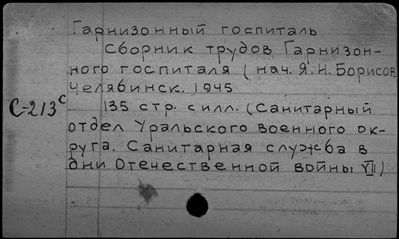 Гарнизонный госпиталь
Сборник трудов Гарнизон-
ного госпиталя (нач. Я. И. Борисов
Челябинск. 1945
С-213с
135 стр. с илл. (Санитарный
отдел Уральского военного ок-
руга. Санитарная служба в
дни Отечественной войны VII)